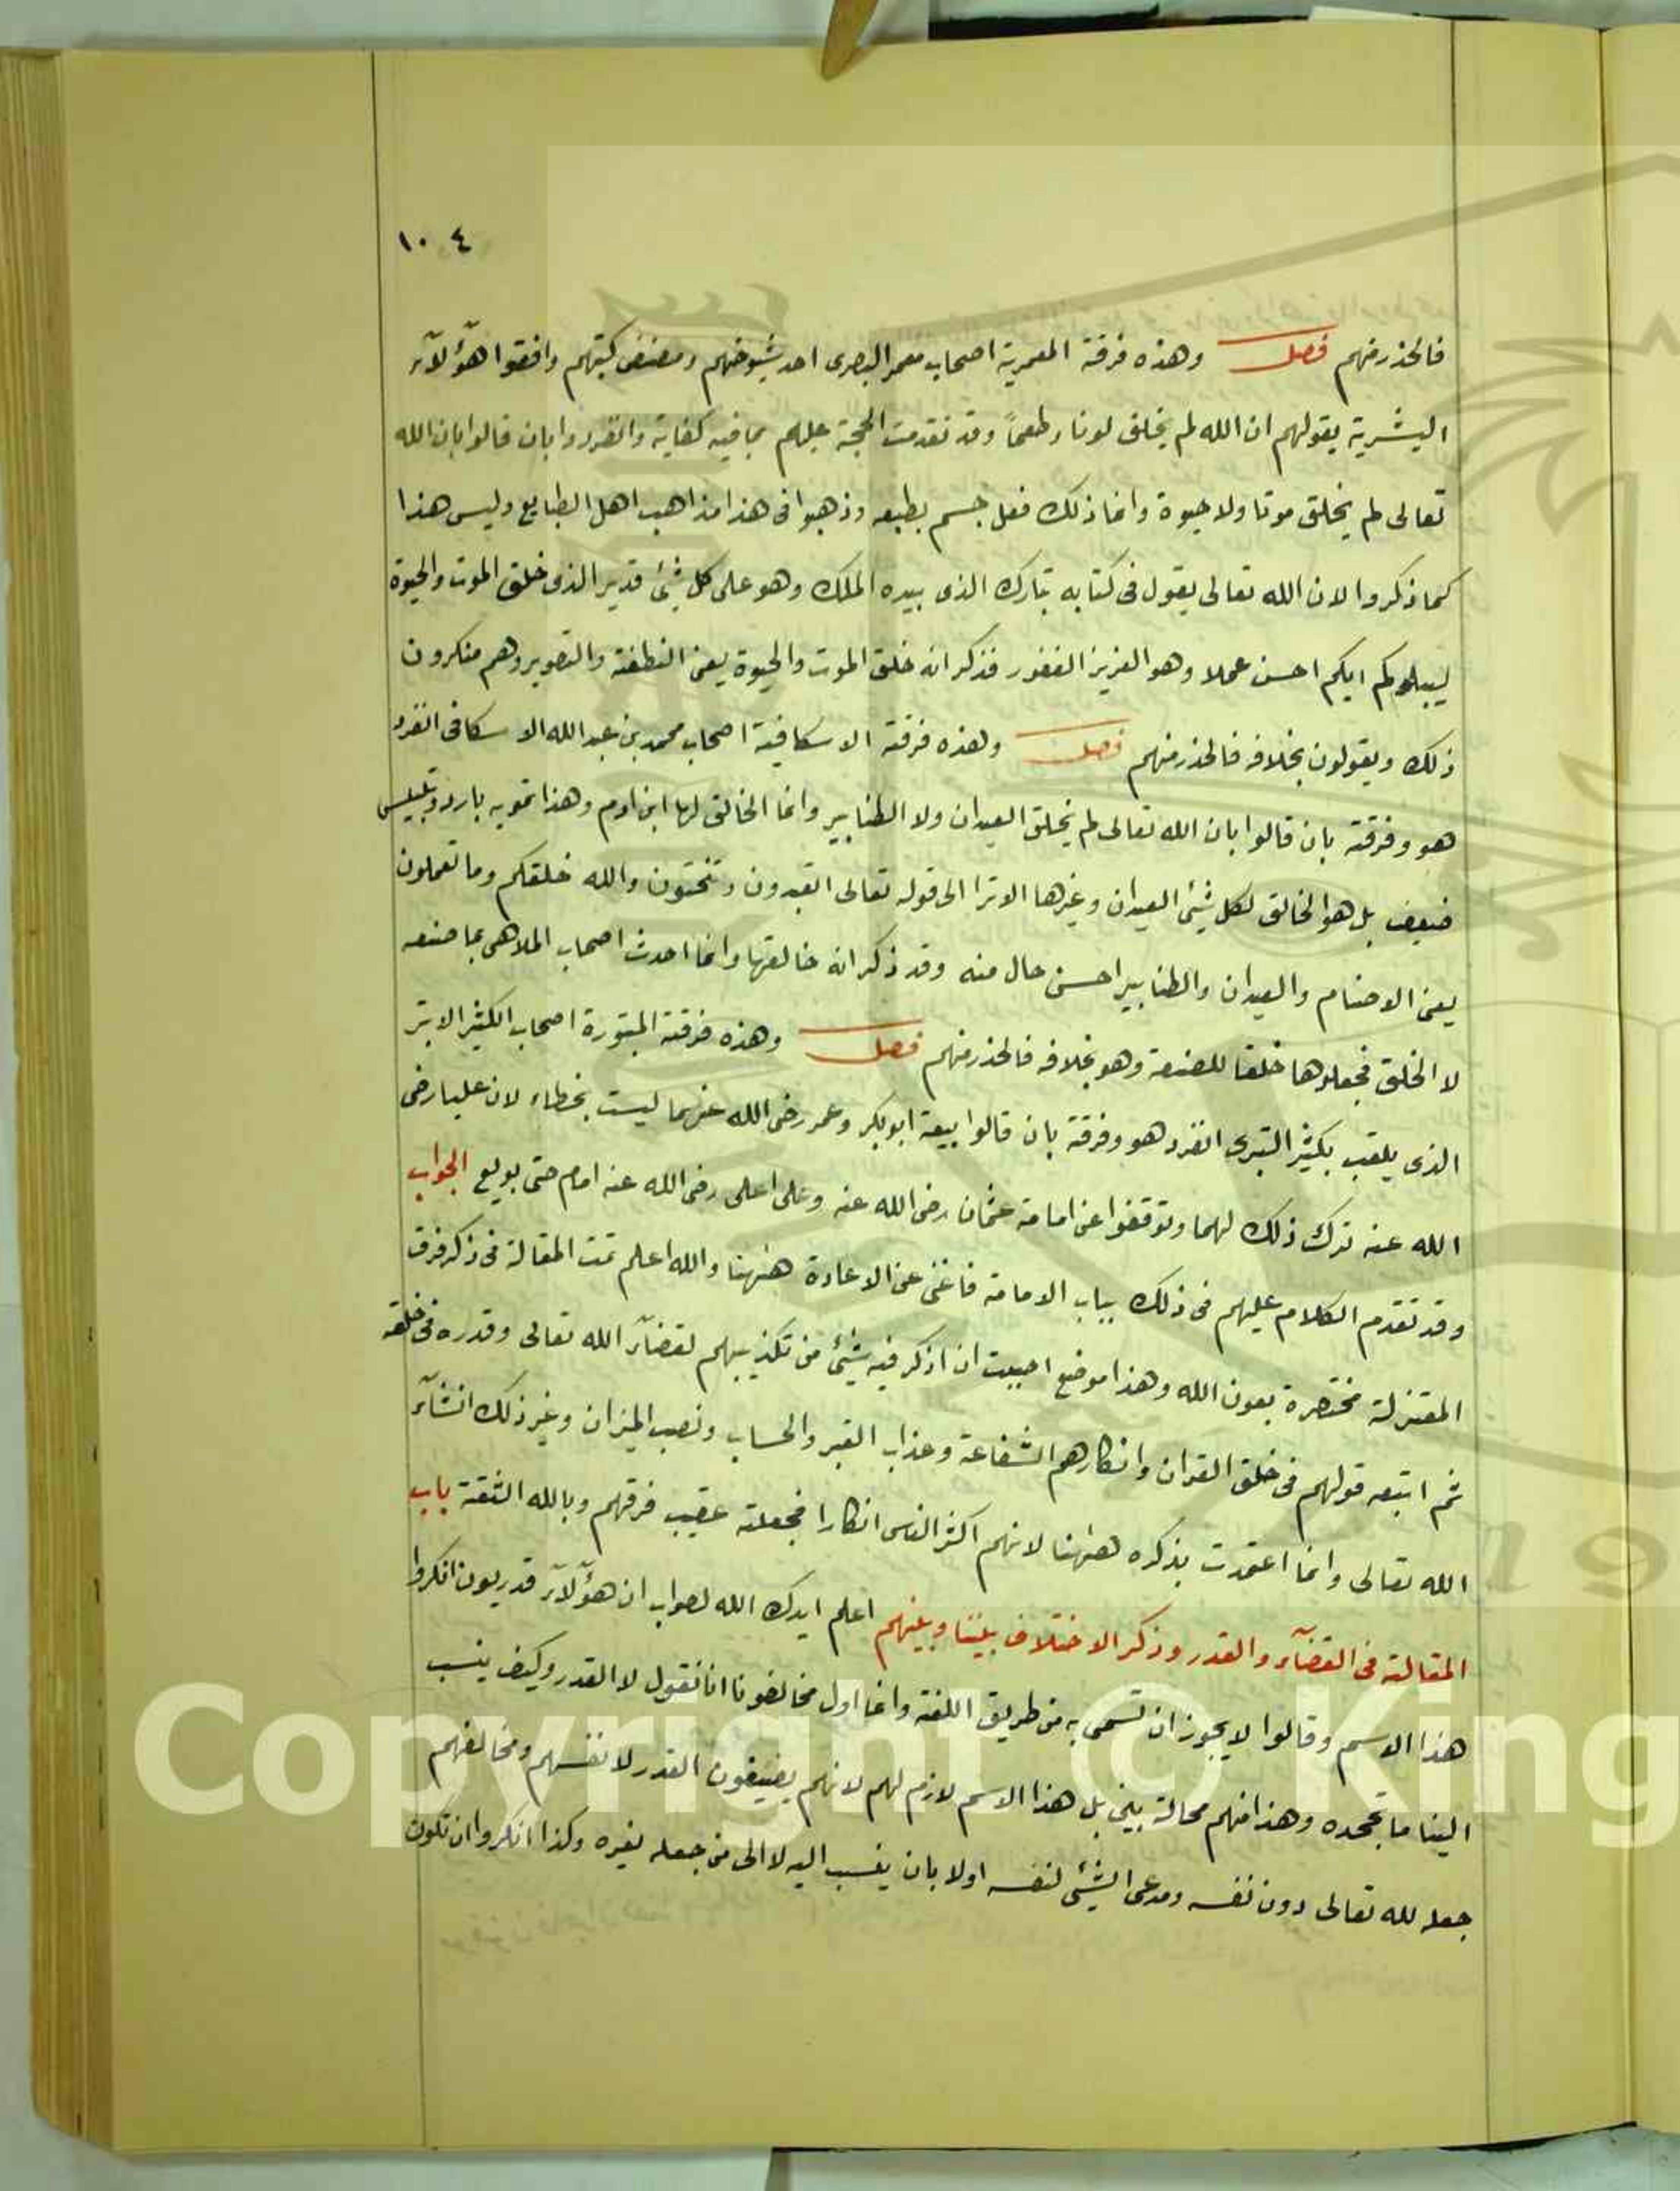 ١٠٤
فالحذر منهم فصل وهذه فرقة المعمرية اصحاب معمر البصرى احد شيوخهم ومصنف كتبهم وافقوا هؤلآء
البشرية بقولهم ان الله لم يخلق لونا وطعماً وقد تقدمت الحجة عليهم بما فيه كفاية وانفردوا بان قالوا بان الله
تعالى لم يخلق موتا ولا حيوة وانما ذلك فعل جسم بطبعه وذهبوا فى هذا مذاهب اهل الطبايع وليس هذا
كما ذكروا لان الله تعالى يقول فى كتابه تبارك الذى بيده الملك وهو على كل شئ قدير الذى خلق الموت والحيوة
ليبلوكم ايكم احسن عملا وهو العزيز الغفور فذكر انه خلق الموت والحيوة يعنى النطفة والتصوير وهم منكرون
ذلك ويقولون بخلافه فالحذر منهم فصل وهذه فرقة الاسكافية اصحاب محمد بن عبد الله الاسكافى انفرد
هو وفرقته بان قالوا بان الله تعالى لم يخلق العيدان ولا الطنابير وانما الخالق لها ابن ادم وهذا تمويه بارد وتلبيس
ضعيف بل هو الخالق لكل شئ العيدان وغيرها الا ترا الى قوله تعالى اتعبدون وتنحتون والله خلقكم وما تعملون
يعنى الاصنام والعيدان والطنابير احسن حال منه وقد ذكر انه خالقها وانما احدث اصحاب الملاهى بما صنعه
لا الخلق فجعلوها خلقا للصنعة وهو بخلافه فالحذر منهم فصل وهذه فرقة المبتورة اصحاب الكثير الابتر
الذى يلقب بكثير التبرى انفرد هو وفرقة بان قالوا بيعة ابو بكر وعمر رضى الله عنهما ليست بخطاء لان عليا رضى
الله عنه ترك ذلك لهما وتوقفوا عن امامة عثمان رضى الله عنه وعلى اعلى رضى الله عنه امام حتى بويع الجواب
وقد تقدم الكلام عليهم فى ذلك بباب الامامة فاغنى عن الاعادة ههنا والله اعلم تمت المقالة فى ذكر فرق
المعتزلة مختصرة بعون الله وهذا موضع احببت ان اذكر فيه شئ من تكذيبهم لقضآء الله تعالى وقدره فى خلقه
ثم اتبعه قولهم فى خلق القران وانكارهم الشفاعة وعذاب القبر والحساب ونصب الميزان وغير ذلك انشآء
الله تعالى وانما اعتمدت بذكره ههنا لانهم اكثر الناس انكارا فجعلته عقيب فرقهم وبالله الثقة باب
المقالة فى القضآء والقدر وذكر الاختلاف بيننا وبينهم اعلم ايدك الله لصواب ان هؤلآء قدريون انكروا
هذا الاسم وقالوا لا يجوز ان تسمى به من طريق اللغة وانما اول مخالفونا انا نقول لا القدر وكيف ينسب
الينا ما نجحده وهذا منهم محالة بينى بل هذا الاسم لازم لهم لانهم يضيفون القدر لانفسهم ومخالفهم
جعله لله تعالى دون نفسه ومدعى الشئ لنفسه اولا بان ينسب اليه لا الى من جعله لغيره وكذا انكروا ان تكون
Copyright © King